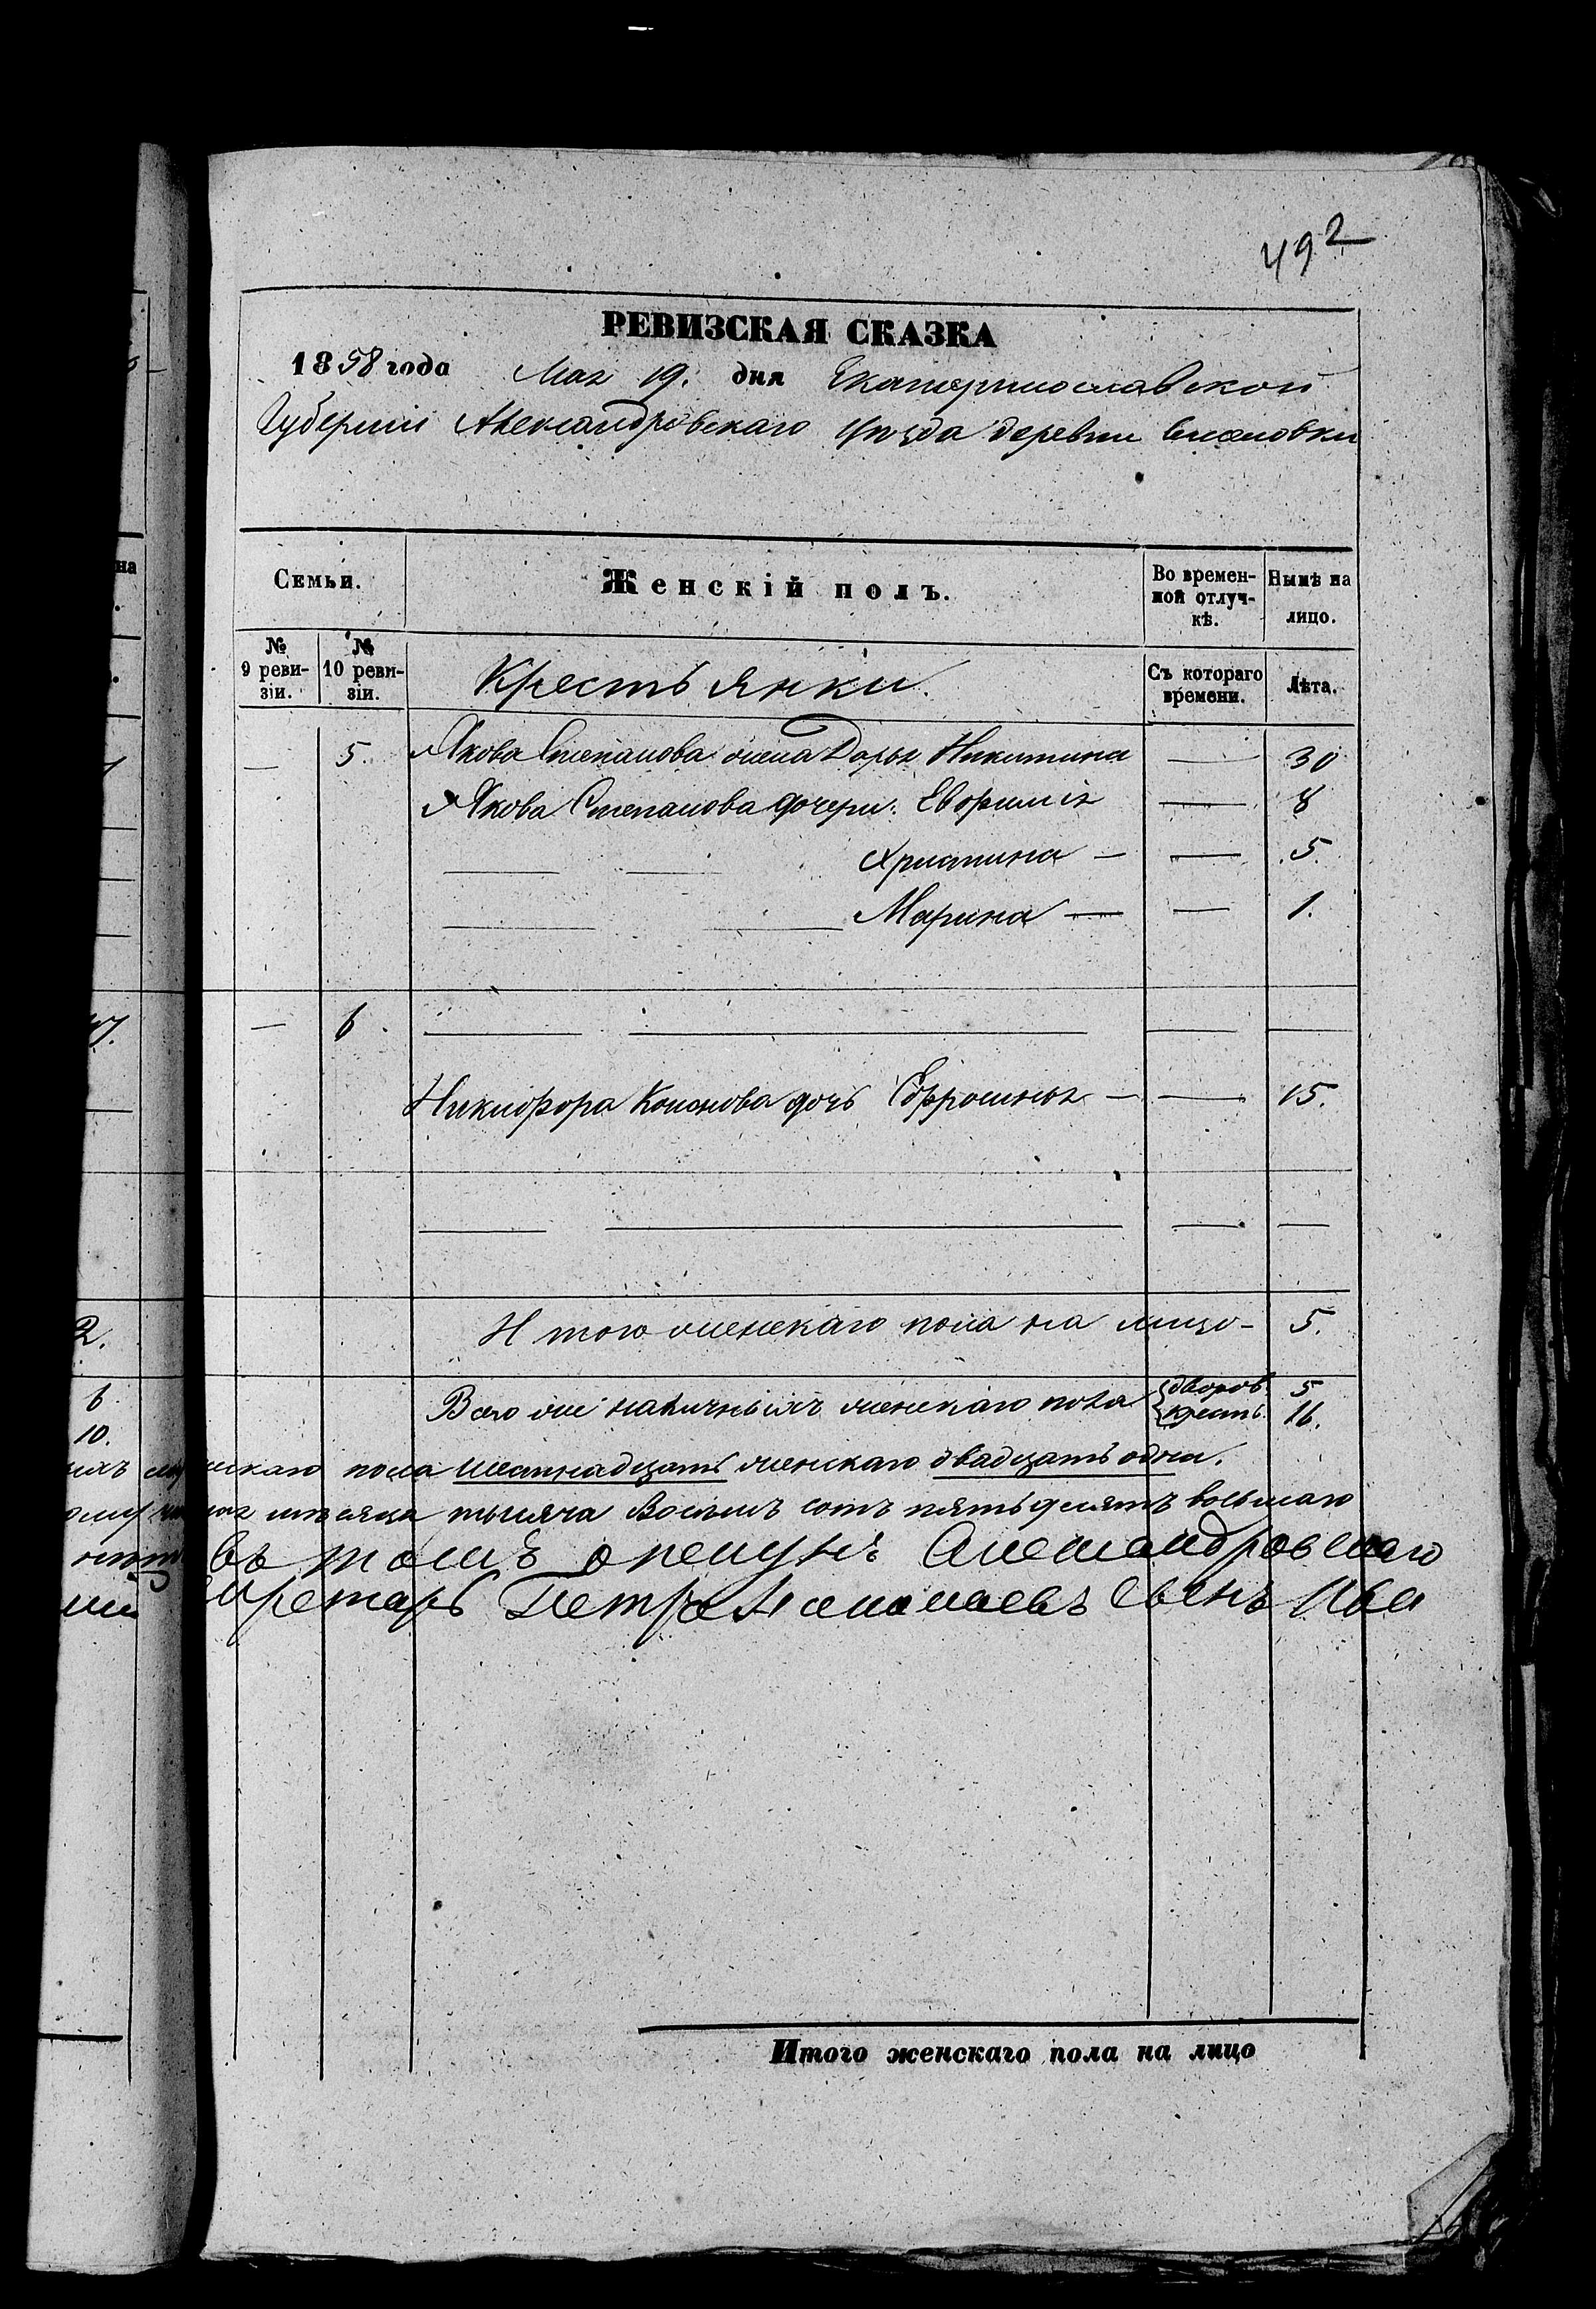 492
РЕВИЗСКАЯ СКАЗКА
1858 года Мая 19. дня Екатеринославской
Губерніи Александровскаго уѣзда деревни
Семьи. Женскій полъ. Во времен-ной отлуч-кѣ. Нынѣ на лицо.
№ 9 реви-зіи. № 10 реви-зіи. Крестьянки. Съ котораго времени. Лѣта.
— 5. Якова Степанова жена Дарья Никитина — 30
Якова Степанова дочери: Евфимія — 8
Христина — — 5.
Марина — — 1.
— 6.
Никифора Кононова дочь Ефросинья — — 15.
Итого женскаго пола на лицо — 5.
Всего же наличныхъ женскаго пола {дворов. 5
{крестъ. 16.
пола шестнадцать женскаго двадцать одна.
мѣсяца тысяча восемь сотъ пятьдесятъ восьмаго
въ томъ опекунъ Александровскаго
Петръ сынъ
Итого женскаго пола на лицо